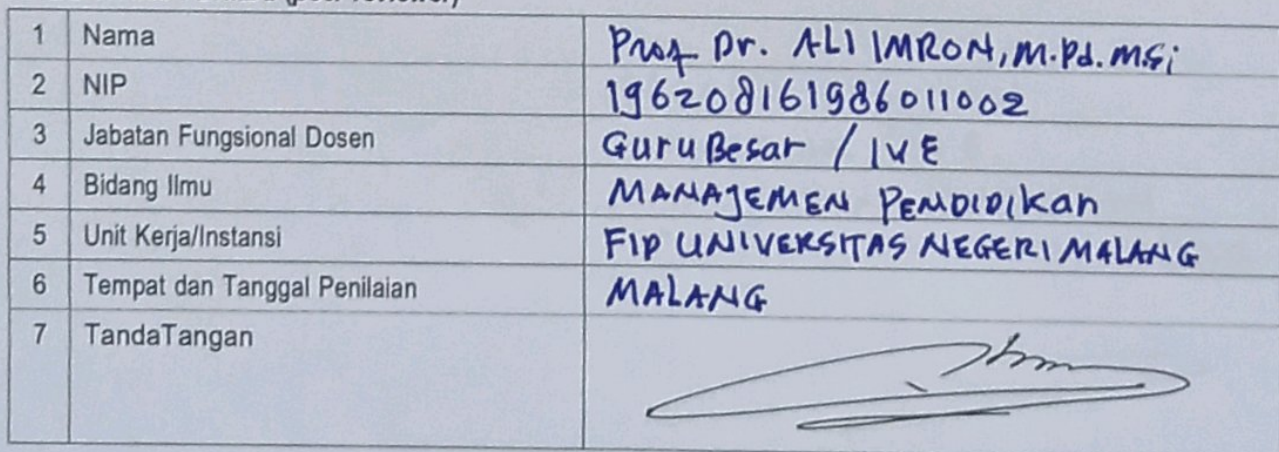 1 Nama Prof Dr. ALI IMRON, M.Pd. M.Si
2 NIP 196208161986011002
3 Jabatan Fungsional Dosen Guru Besar / IVE
4 Bidang Ilmu MANAJEMEN PENDIDIKan
5 Unit Kerja/Instansi FIP UNIVERSITAS NEGERI MALANG
6 Tempat dan Tanggal Penilaian MALANG
7 TandaTangan